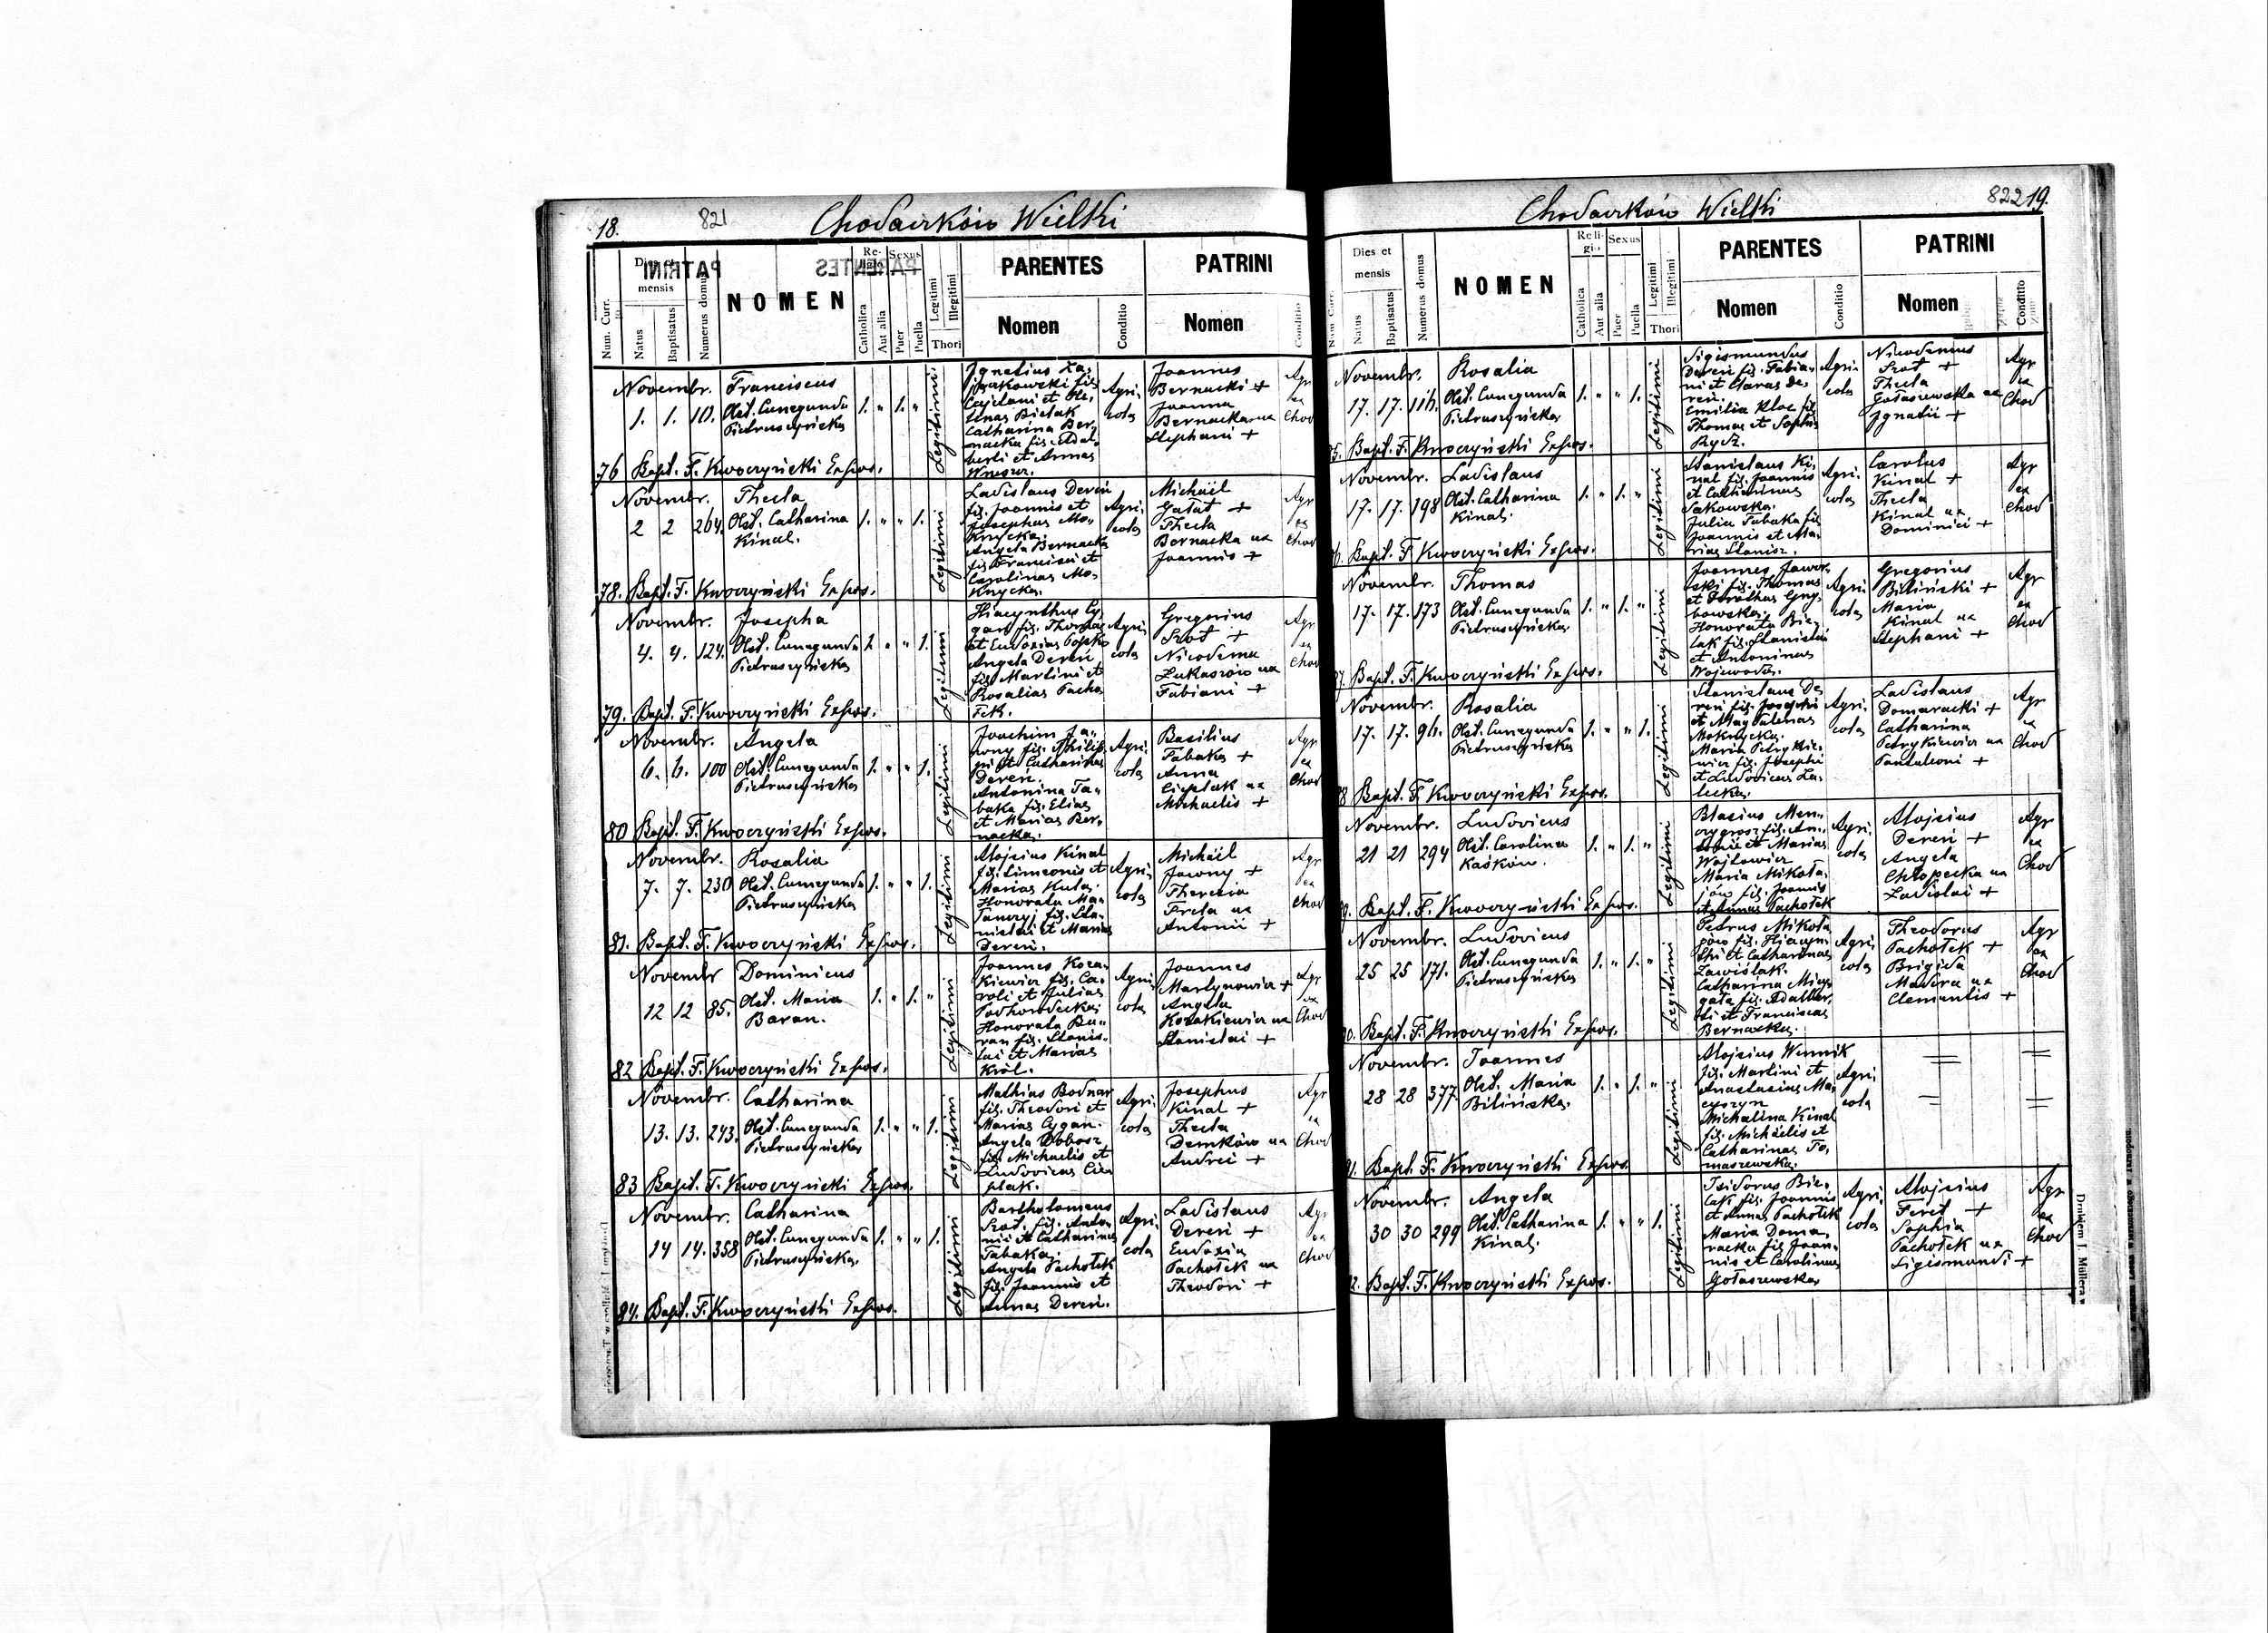 18. 821 Chodaczków Wielki
Num. Curr.
Dies et mensis
Natus
Baptisatus
Numerus domus
NOMEN
Religio
Catholica
Aut alia
Sexus
Puer
Puella
Legitimi
Illegitimi
Thori
PARENTES
Nomen
Conditio
PATRINI
Nomen
Conditio
Novembr. Franciscus
1. 1. 10.
Obst. Cunegunda
Pietruszyńska
1. " 1. "
Legitimi
Catharina Ber-
nacka fil. Adal-
berti et Annae
Agri-
cola
Joannes
Bernacki +
Joanna
Bernacka ux
Stephani +
Agr
ex
Chod
76 Bapt. F. Kwoczyński Expos.
Novembr. Thecla
2 2 264.
Obst. Catharina
Kinal.
1. " " 1.
Legitimi
Ladislaus Dereń
fil. Joannis et
Josephae Mo-
krycka.
Angela Bernacka
fil. Francisci et
Carolinae Mo-
krycka.
Agri-
cola
Michaël
Gałat +
Thecla
Bernacka ux
Joannis +
Agr
ex
Chod
78. Bapt. F. Kwoczyński Expos.
Novembr. Josepha
4. 4. 124.
Obst. Cunegunda
Pietruszyńska
1 " " 1.
Legitimi
Hiacynthus Cy-
gan fil. Thomae
et Eudoxiae Popko
Angela Dereń
fil. Martini et
Rosaliae Pacho-
łek.
Agri-
cola
Gregorius
Szot +
Nicodema
Łukaszów ux
Fabiani +
Agr
ex
Chod
79. Bapt. F. Kwoczyński Expos.
Novembr. Angela
6. 6. 100
Obst. Cunegunda
Pietruszyńska
1. " " 1.
Legitimi
Joachim Ja-
worny fil. Philip-
pi et Catharinae
Dereń.
Antonina Ta-
baka fil. Eliae
et Mariae Ber-
nacka.
Agri-
cola
Basilius
Tabaka +
Anna
Cieplak ux
Michaelis +
Agr
ex
Chod
80 Bapt. F. Kwoczyński Expos.
Novembr. Rosalia
7. 7. 230
Obst. Cunegunda
Pietruszyńska
1. " " 1.
Legitimi
Alojsius Kinal
fil. Simeonis et
Mariae Kula.
Honorata Ma-
fil. Sta-
nislai et Mariae
Dereń.
Agri-
cola
Michaël
Jaworny +
Theresia
Freta ux
Antonii +
Agr
ex
Chod
81. Bapt. F. Kwoczyński Expos.
Novembr Dominicus
12 12 85.
Obst. Maria
Baran.
1. " 1. "
Legitimi
Joannes Koza-
kiewicz fil. Ca-
roli et Juliae
Podhorodecka
Honorata Ba-
ran fil. Stanis-
lai et Mariae
Król.
Agri-
cola
Joannes
Martynowicz +
Angela
Kozakiewicz ux
Stanislai +
Agr
ex
Chod
82 Bapt. F. Kwoczyński Expos.
Novembr. Catharina
13. 13. 243.
Obst. Cunegunda
Pietruszyńska
1. " " 1.
Legitimi
Mathias Bodnar
fil. Theodori et
Mariae Cygan.
Angela Dobosz
fil. Michaelis et
Ludovicae Cie-
plak.
Agri-
cola
Josephus
Kinal +
Thecla
Demków ux
Andrei +
Agr
ex
Chod
83 Bapt. F. Kwoczyński Expos.
Novembr. Catharina
14 14. 358
Obst. Cunegunda
Pietruszyńska
1. " " 1.
Legitimi
Bartholomeus
Szot. fil. Anto-
nii et Catharinae
Tabaka.
Angela Pachołek
fil. Joannis et
Annae Dereń.
Agri-
cola
Ladislaus
Dereń +
Eudoxia
Pachołek ux
Theodori +
Agr
ex
Chod
84. Bapt. F. Kwoczyński Expos.
Chodaczków Wielki 822 19.
Num Curr.
Dies et mensis
Natus
Baptisatus
Numerus domus
NOMEN
Religio
Catholica
Aut alia
Sexus
Puer
Puella
Legitimi
Illegitimi
Thori
PARENTES
Nomen
Conditio
PATRINI
Nomen
Conditio
Novembr. Rosalia
17. 17. 116.
Obst. Cunegunda
Pietruszyńska
1. " " 1.
Legitimi
Sigismundus
Dereń fil. Fabia-
ni et Clarae De-
reń.
Emilia Kloc fil
Thomae et Sophiae
Rycz.
Agri-
cola
Nicodemus
Szot +
Thecla
Gołaszewska ux
Ignatii +
Agr
ex
Chod
5. Bapt. F. Kwoczyński Expos.
Novembr. Ladislaus
17. 17. 198
Obst. Catharina
Kinal.
1. " 1. "
Legitimi
Stanislaus Ki-
nal fil. Joannis
et Catharinae
Sakowska.
Julia Tabaka fil
Joannis et Ma-
riae Stanisz.
Agri-
cola
Carolus
Kinal +
Thecla
Kinal ux
Dominici +
Agr
ex
Chod
6. Bapt. F. Kwoczyński Expos.
Novembr. Thomas
17. 17. 173
Obst. Cunegunda
Pietruszyńska
1. " 1. "
Legitimi
Joannes Jawor-
ski fil. Thomae
et Dorothae Grzy-
bowska.
Honorata Bie-
lak fil. Stanislai
et Antoninae
Wojewoda.
Agri-
cola
Gregorius
Biliński +
Maria
Kinal ux
Stephani +
Agr
ex
Chod
7. Bapt. F. Kwoczyński Expos.
Novembr. Rosalia
17. 17. 96.
Obst. Cunegunda
Pietruszyńska
1. " " 1.
Legitimi
Stanislaus De-
reń fil. Josephi
et Magdalenae
Mokrycka.
Maria Petrykie-
wicz fil. Josephi
et Ludovicae Ła-
lecka.
Agri-
cola
Ladislaus
Domaracki +
Catharina
Petrykiewicz ux
Pantaleoni +
Agr
ex
Chod
8 Bapt. F. Kwoczyński Expos.
Novembr. Ludovicus
21 21 294
Obst. Carolina
Kaśków.
1. " 1. "
Legitimi
Blasius Men-
czygrosz fil. An-
et Mariae
Wojtowicz
Maria Mikoła-
jów fil. Joannis
et Annae Pachołek
Agri-
cola
Alojsius
Dereń +
Angela
Chłopecka ux
Ladislai +
Agr
ex
Chod
9. Bapt. F. Kwoczyński Expos.
Novembr. Ludovicus
25 25 171.
Obst. Cunegunda
Pietruszyńska
1. " 1. "
Legitimi
Petrus Mikoła-
jów fil. Hiacyn-
thi et Catharinae
Zawiślak.
Catharina Mięy-
gała fil. Adalber-
ti et Franciscae
Bernacka.
Agri-
cola
Theodorus
Pachołek +
Brigida
Madera ux
Clementis +
Agr
ex
Chod
0. Bapt. F. Kwoczyński Expos.
Novembr. Joannes
28 28 377.
Obst. Maria
Bilińska.
1. " 1. "
Legitimi
Alojsius Winnik
fil. Martini et
Anastasiae Ma-
cyszyn
Michalina Kinal
fil. Michaelis et
Catharinae To-
maszewska.
Agri-
cola
= =
= =
1. Bapt. F. Kwoczyński Expos.
Novembr. Angela
30 30 299
Obst. Catharina
Kinal.
1. " " 1.
Legitimi
Isidorus Bie-
lak fil. Joannis
et Annae Pachołek
Maria Doma-
racka fil. Joan-
nis et Carolinae
Gołaszewska
Agri-
cola
Alojsius
Feret +
Sophia
Pachołek ux
Sigismundi +
Agr
ex
Chod
2. Bapt. F. Kwoczyński Expos.
Drukiem J. Müllera